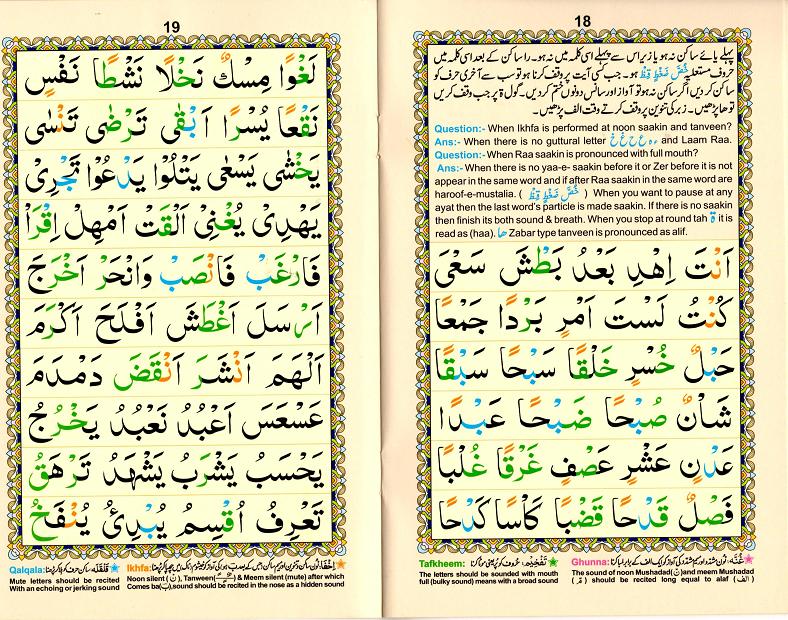 18
پہلے یائے ساکن نہ ہو یا زیر اس سے پہلے اسی کلمہ میں نہ ہو۔ را ساکن کے بعد اسی کلمہ میں
حروف مستعلیہ خُصَّ ضَغْطٍ قِظْ ہو۔ جب کسی آیت پر وقف کرنا ہو تو سب سے آخری حرف کو
ساکن کر دیں اگر ساکن نہ ہو تو آواز اور سانس دونوں ختم کر دیں۔ گول ۃ پر جب وقف کریں
تو ھا پڑھیں۔ زبر کی تنوین پر وقف کرتے وقت الف پڑھیں۔
Question:- When Ikhfa is performed at noon saakin and tanveen?
Ans:- When there is no guttural letter ء ہ ع ح غ خ and Laam Raa.
Question:- When Raa saakin is pronounced with full mouth?
Ans:- When there is no yaa-e- saakin before it or Zer before it is not
appear in the same word and if after Raa saakin in the same word are
haroof-e-mustalia. ( خُصَّ ضَغْطٍ قِظْ ) When you want to pause at any
ayat then the last word's particle is made saakin. If there is no saakin
then finish its both sound & breath. When you stop at round tah ة it is
read as (haa). ھا Zabar type tanveen is pronounced as alif.
اَنْتَ اِهْدِ بَعْدُ بَطْشَ سَعْىَ
كُنْتُ لَسْتَ اَمْرٍ بَرْدًا جَمْعًا
حَبْلٌ خُسْرٍ خَلْقًا سَبْحًا سَبْقًا
شَاْنٌ صُبْحًا ضَبْحًا عَبْدًا
عَدْنٍ عَشْرٍ عَصْفٍ غَرْقًا غُلْبًا
فَصْلٌ قَدْحًا قَضْبًا كَاْسًا كَدْحًا
Tafkheem:
The letters should be sounded with mouth
full (bulky sound) means with a broad sound
Ghunna:
The sound of noon Mushadad (نّ) and meem Mushadad
(مّ) should be recited long equal to alaf (الف)
19
لَغْوًا مِسْكٌ نَخْلًا نَشْطًا نَفْسٍ
نَقْعًا يُسْرًا اَبْقٰى تَرْضٰى تَنْسٰى
يَخْشٰى يَسْعٰى يَتْلُوْا يَدْعُوْا تَجْرِىْ
يَهْدِىْ يُغْنِىْ اَلْقَتْ اَمْهِلْ اِقْرَاْ
فَارْغَبْ فَانْصَبْ وَانْحَرْ اَخْرَجَ
اَرْسَلَ اَغْطَشَ اَفْلَحَ اَكْرَمَ
اَلْهَمَ اَنْشَرَ اَنْقَضَ دَمْدَمَ
عَسْعَسَ اَعْبُدُ نَعْبُدُ يَخْرُجُ
يَحْسَبُ يَشْرَبُ يَشْهَدُ تَرْهَقُ
تَعْرِفُ اُقْسِمُ يُبْدِئُ يُنْفَخُ
Qalqala:
Mute letters should be recited
With an echoing or jerking sound
Ikhfa:
Noon silent (نْ), Tanween & Meem silent (mute) after which
Comes ba(ب),sound should be recited in the nose as a hidden sound